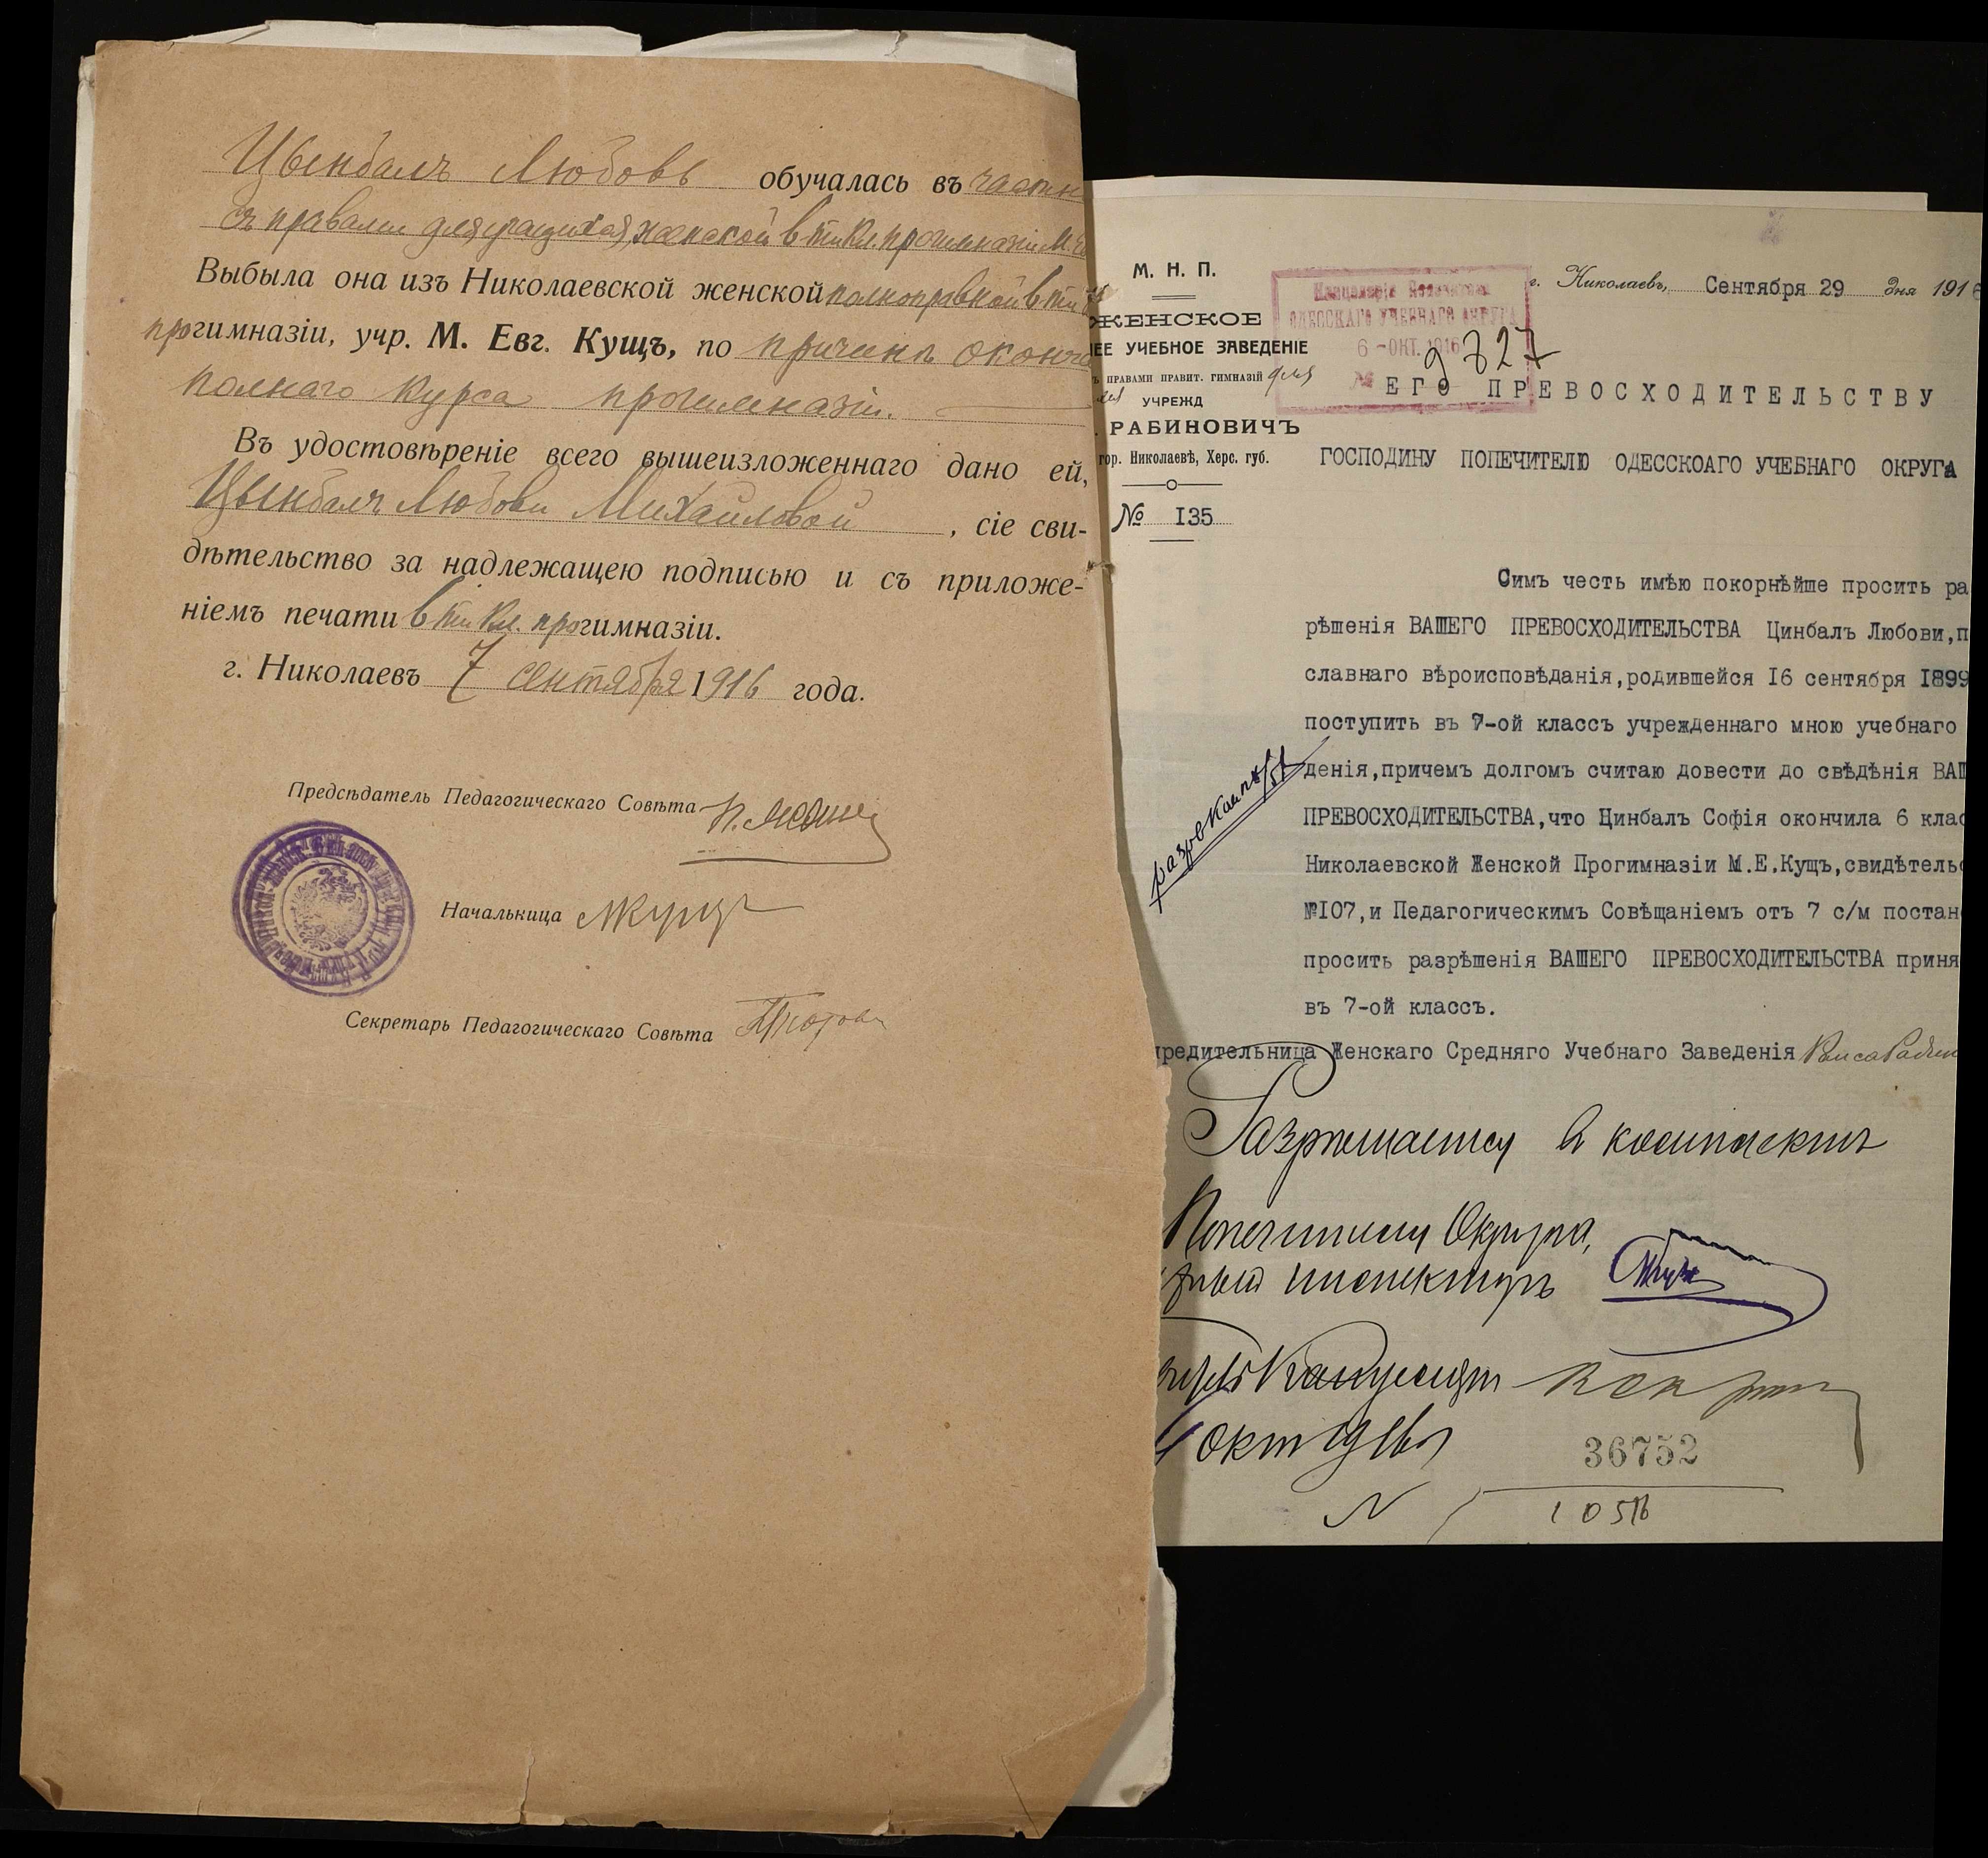 Цвинбалъ Любовь обучалась въ частн
съ правами для учащихся, женской 6ти кл. прогимназіи М.
Выбыла она изъ Николаевской женской полноправной 6ти
прогимназіи, учр. М. Евг. Кущъ, по причинѣ оконча
полнаго курса прогимназіи.
Въ удостовѣреніе всего вышеизложеннаго дано ей,
Цвинбалъ Любови Михайловой, сіе сви-
дѣтельство за надлежащею подписью и съ приложе-
ніемъ печати 6ти кл. прогимназіи.
г. Николаевъ 7 сентября 1916 года.
Предсѣдатель Педагогическаго Совѣта
Начальница МКущъ
Секретарь Педагогическаго Совѣта
М. Н. П.
ЖЕНСКОЕ
ЕЕ УЧЕБНОЕ ЗАВЕДЕНІЕ
Ъ ПРАВАМИ ПРАВИТ. ГИМНАЗІЙ для
УЧРЕЖД
. РАБИНОВИЧЪ
гор. Николаевѣ, Херс. губ.
№ I35
г. Николаевъ, Сентября 29 дня 1916
Канцелярія Попечителя
ОДЕССКАГО УЧЕБНАГО ОКРУГА
6 - ОКТ. 1916
№ 9827
ЕГО ПРЕВОСХОДИТЕЛЬСТВУ
ГОСПОДИНУ ПОПЕЧИТЕЛЮ ОДЕССКОАГО УЧЕБНАГО ОКРУГА
Симъ честь имѣю покорнѣйше просить ра
рѣшенія ВАШЕГО ПРЕВОСХОДИТЕЛЬСТВА Цинбалъ Любови,п
славнаго вѣроисповѣданія,родившейся I6 сентября I899
поступить въ 7-ой классъ учрежденнаго мною учебнаго
денія,причемъ долгомъ считаю довести до свѣдѣнія ВАШ
ПРЕВОСХОДИТЕЛЬСТВА,что Цинбалъ Софія окончила 6 клас
Николаевской Женской Прогимназіи М.Е.Кущъ,свидѣтельс
№I07,и Педагогическимъ Совѣщаніемъ отъ 7 с/м постан
просить разрѣшенія ВАШЕГО ПРЕВОСХОДИТЕЛЬСТВА приня
въ 7-ой классъ.
чредительница Женскаго Средняго Учебнаго Заведенія Раиса Рабин
Разрѣшается
Попечителя Округа,
инспекторъ
окт 1916
36752
N 10516